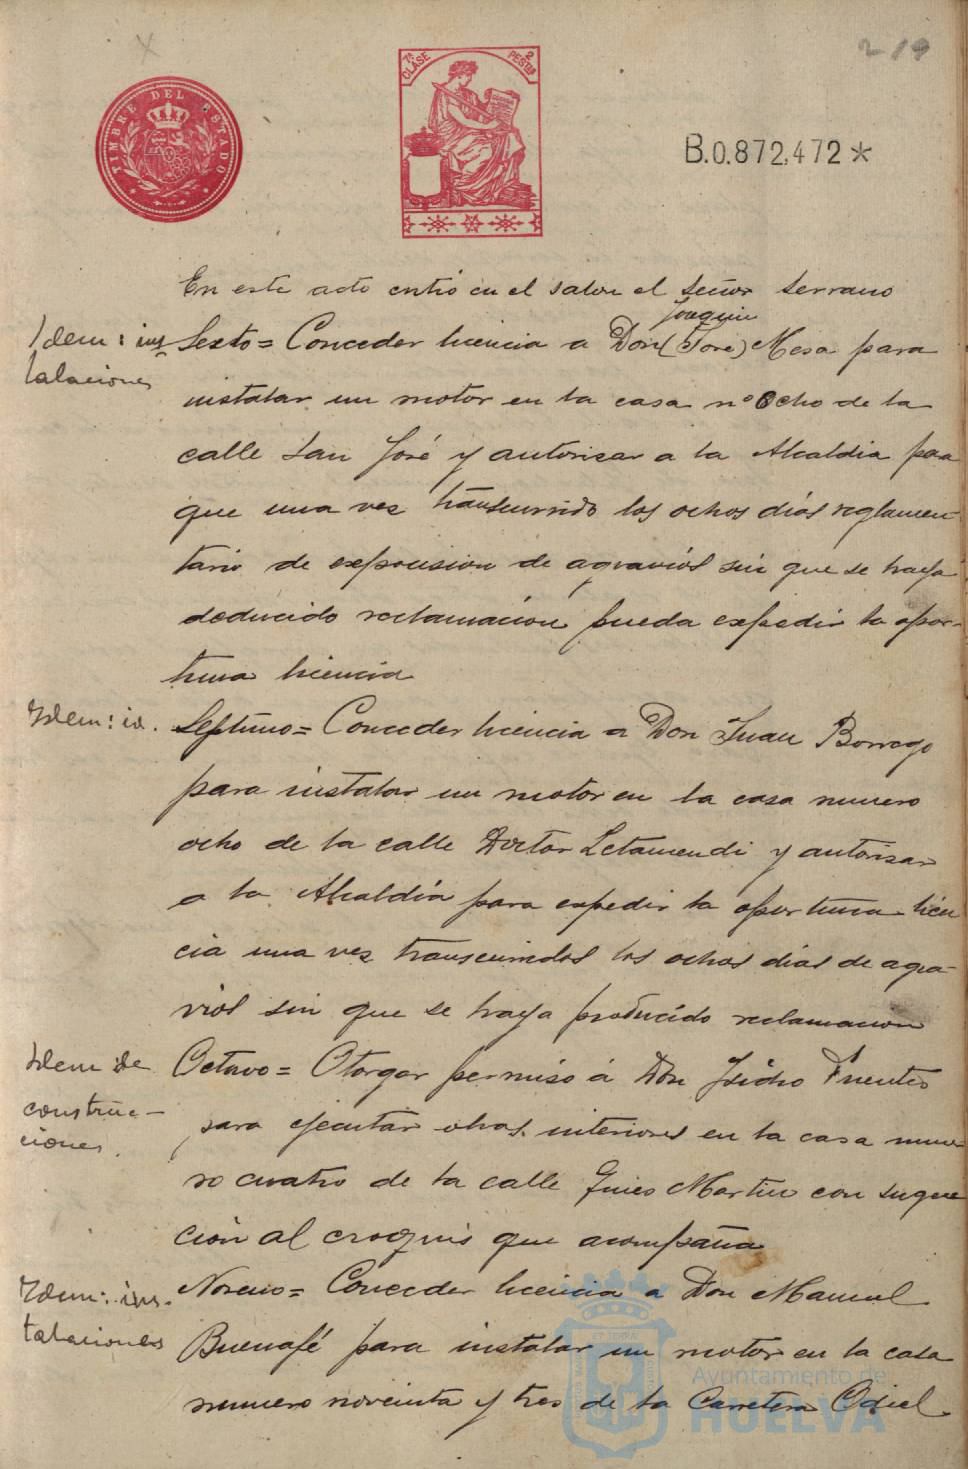 219
TIMBRE DEL ESTADO
7ª CLASE
2 PESETAS
B.0.872,472*
En este acto entró en el salon el señor Serrano
Joaquin
Idem: ins
talaciones
Sexto= Conceder licencia a Don (José) Mesa para
instalar un motor en la casa nº ocho de la
calle San José y autorisar a la Alcaldia para
que una vez transcurrido los ochos días reglamen-
tario de exposision de agraviós sin que se haya
deducido reclamación pueda expedir la opor-
tuna licencia
Idem: id.
Septimo= Conceder licencia a Don Juan Borrego
para instalar un motor en la casa numero
ocho de la calle Doctor Letamendi y autorisar
a la Alcaldía para expedir la oportuna licen
cia una vez transcurridos los ochos días de agra-
viós sin que se haya producido reclamacion
Idem de
construc-
ciones.
Octavo= Otorgar permiso á Don Isidro Fuentes
para ejecutar obras interiores en la casa nume
ro cuatro de la calle Gines Martin con sugec
ción al croquis que acompaña
Idem: ins.
talaciones
Noveno= Conceder licencia a Don Manuel
Buenafé para instalar un motor en la casa
numero noveinta y tres de la Carretera Odiel
Ayuntamiento de
HUELVA